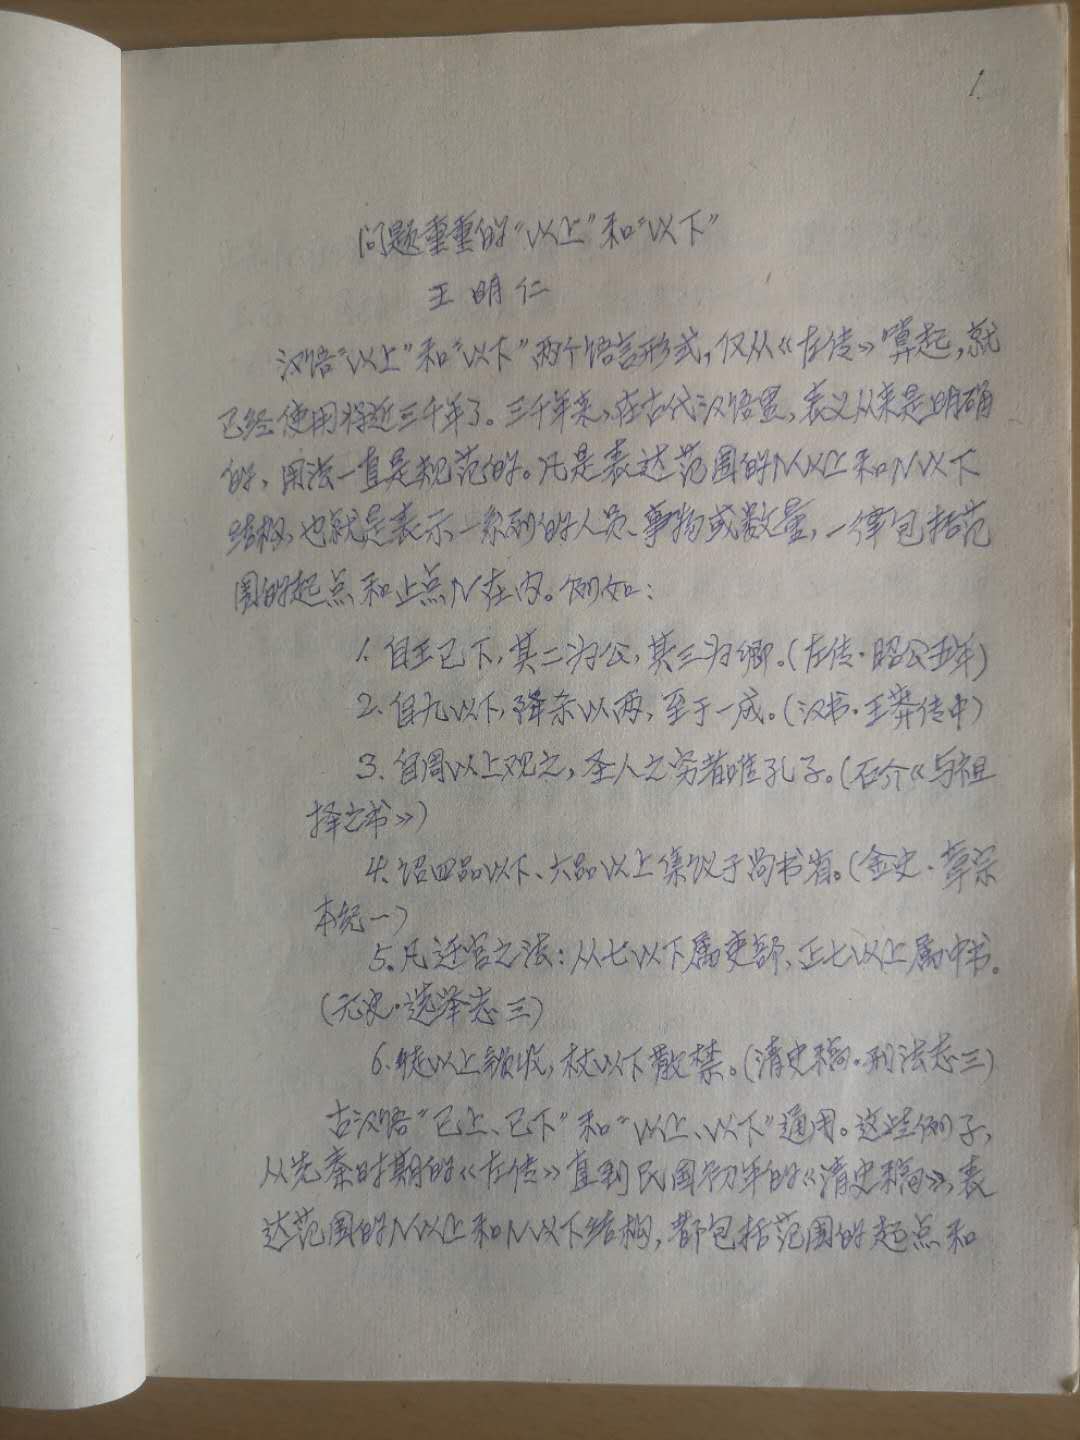 1.
问题重重的“以上”和“以下”
王明仁
汉语“以上”和“以下”两个语言形式，仅从《左传》算起，就
已经使用将近三千年了。三千年来，在古代汉语里，表义从来是明确
的，用法一直是规范的。凡是表达范围的N以上和N以下
结构，也就是表示一系列的人员、事物或数量，一律包括范
围的起点和止点N在内。例如：
1. 自王已下，其二为公，其三为卿。（左传·昭公五年）
2. 自九以下，降杀以两，至于一成。（汉书·王莽传中）
3. 自周以上观之，圣人之穷者唯孔子。（石介《与祖
择之书》）
4. 诏四品以下、六品以上集议于尚书省。（金史·章宗
本纪一）
5. 凡迁官之法：从七以下属吏部，正七以上属中书。
（元史·选举志三）
6. 徒以上锁收，杖以下散禁。（清史稿·刑法志三）
古汉语“已上、已下”和“以上、以下”通用。这些例子，
从先秦时期的《左传》直到民国初年的《清史稿》，表
达范围的N以上和N以下结构，都包括范围的起点和